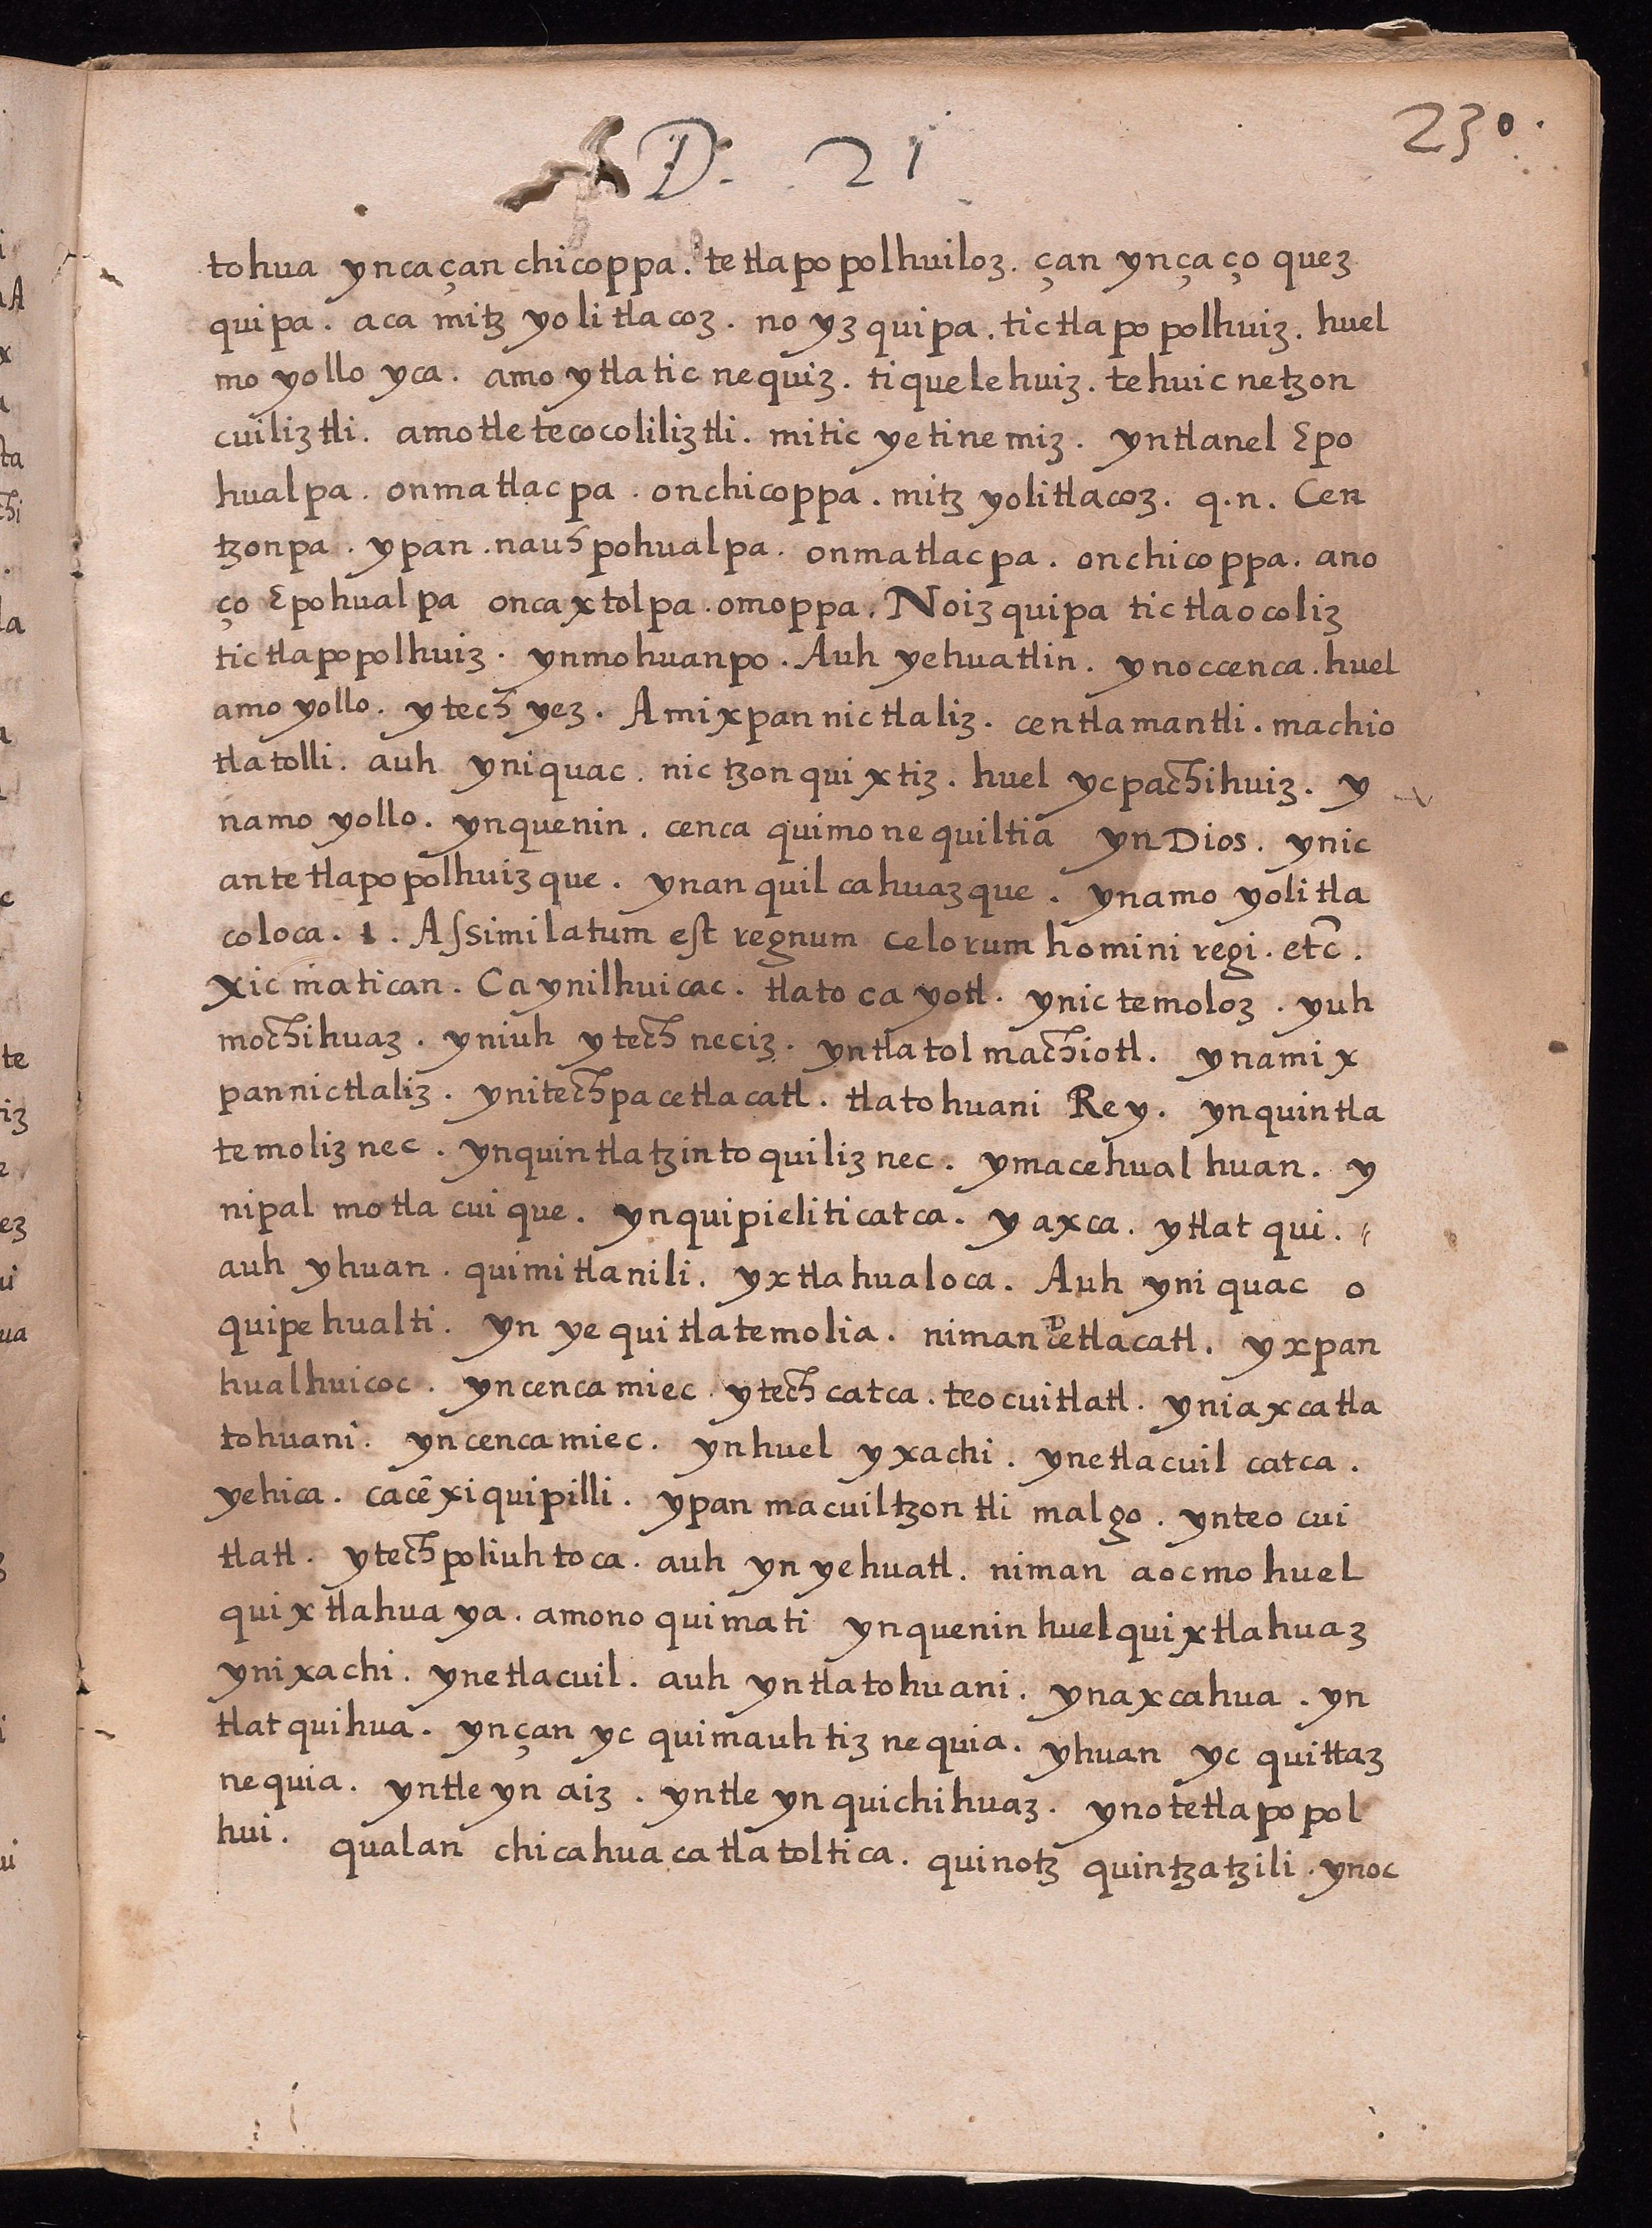 D. 21
230.
tohua yncaçan chicoppa. tetlapopolhuiloz. çan ynçaço quez
quipa. aca mitz yolitlacoz. no yzquipa. tictlapopolhuiz. huel
mo yollo yca. amo ytlatic nequiz. tiquelehuiz. tehuic netzon
cuiliztli. amotle tecocoliliztli. mitic yetinemiz. yntlanel Epo
hualpa. onmatlacpa. onchicoppa. mitz yolitlacoz. q.n. Cen
tzonpa. ypan. nauhpohualpa. onmatlacpa. onchicoppa. ano
ço Epohualpa oncaxtolpa. omoppa. Noizquipa tictlaocoliz
tictlapopolhuiz. ynmohuanpo. Auh yehuatlin. ynoccenca. huel
amo yollo. ytech yez. Amixpan nictlaliz. centlamantli. machio
tlatolli. auh yniquac. nictzonquixtiz. huel ycpachihuiz. y
namo yollo. ynquenin. cenca quimonequiltia yn Dios. ynic
antetlapopolhuizque. ynanquilcahuazque. ynamo yolitla
coloca. 1. Assimilatum est regnum celorum homini regi. etc̄.
xicmatican. Ca ynilhuicac. tlatocayotl. ynictemoloz. yuh
mochihuaz. yniuh ytech neciz. yntlatolmachiotl. ynamix
pannictlaliz. ynitechpacetlacatl. tlatohuani Rey. ynquintla
temoliznec. ynquintlatzintoquiliznec. ymacehualhuan. y
nipal motlacuique. ynquipieliticatca. yaxca. ytlatqui.
auh yhuan. quimitlanili. yxtlahualoca. Auh yniquac o
quipehualti. yn ye quitlatemolia. niman cetlacatl. yxpan
hualhuicoc. yncencamiec. ytech catca. teocuitlatl. yniaxcatla
tohuani. yncencamiec. ynhuel yxachi. ynetlacuil catca.
yehica. cacēxiquipilli. ypan macuiltzontli malgo. ynteocui
tlatl. ytechpoliuhtoca. auh yn yehuatl. niman aocmo huel
quixtlahuaya. amono quimati ynquenin huelquixtlahuaz
ynixachi. ynetlacuil. auh yntlatohuani. ynaxcahua. yn
tlatquihua. ynçan yc quimauhtiznequia. yhuan yc quittaz
nequia. yntle yn aiz. yntle yn quichihuaz. ynotetlapopol
hui. qualan chicahuacatlatoltica. quinotz quintzatzili. ynoc